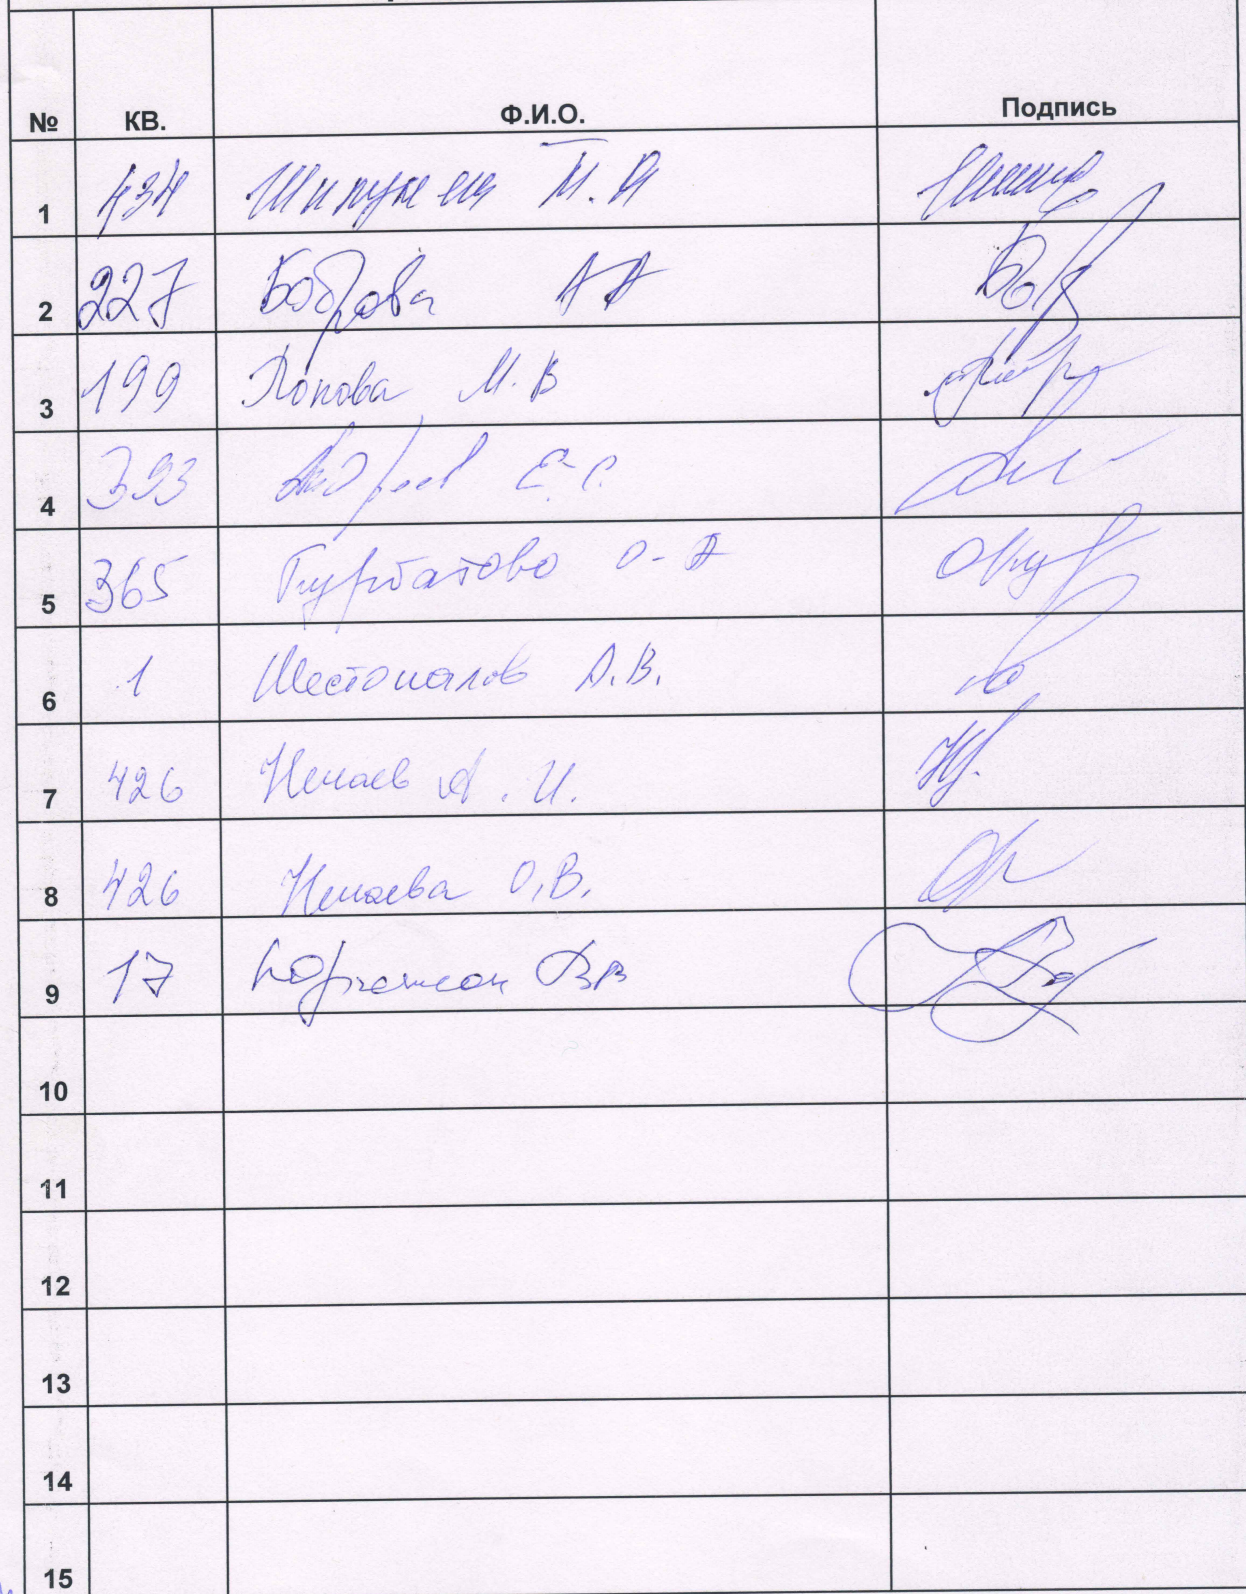 № КВ. Ф.И.О. Подпись
1 434 Т.Я
2 227 Боброва А А
3 199 Попова М. В
4 393 Андреев Е. С.
5 365 Курбатова О. А
6 1 Шестопалов А.В.
7 426 Нечаев А. И.
8 426 Нечаева О.В.
9 17
10
11
12
13
14
15